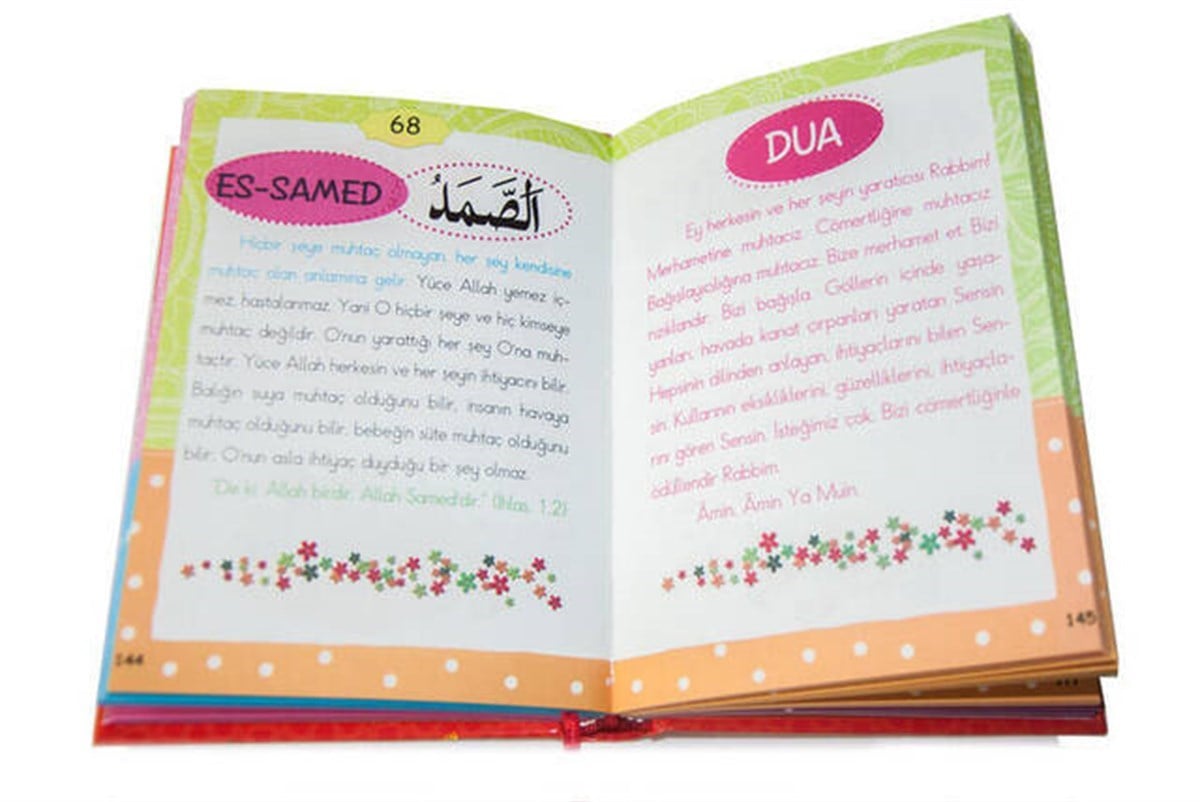 68
ES-SAMED
اَلصَّمَدُ
Hiçbir şeye muhtaç olmayan, her şey kendisine
muhtaç olan anlamına gelir. Yüce Allah yemez iç-
mez, hastalanmaz. Yani O hiçbir şeye ve hiç kimseye
muhtaç değildir. O'nun yarattığı her şey O'na muh-
taçtır. Yüce Allah herkesin ve her şeyin ihtiyacını bilir.
Balığın suya muhtaç olduğunu bilir, insanın havaya
muhtaç olduğunu bilir, bebeğin süte muhtaç olduğunu
bilir. O'nun asla ihtiyaç duyduğu bir şey olmaz.
"De ki: Allah birdir. Allah Samed'dir." (İhlas, 1,2)
144
DUA
Ey herkesin ve her şeyin yaratıcısı Rabbim!
Merhametine muhtacız. Cömertliğine muhtacız.
Bağışlayıcılığına muhtacız. Bize merhamet et. Bizi
rızıklandır. Bizi bağışla. Göllerin içinde yaşa-
yanları, havada kanat çırpanları yaratan Sensin.
Hepsinin dilinden anlayan, ihtiyaçlarını bilen Sen-
sin. Kullarının eksikliklerini, güzelliklerini, ihtiyaçla-
rını gören Sensin. İsteğimiz çok. Bizi cömertliğinle
ödüllendir Rabbim.
Âmin, Âmin Ya Muin.
145